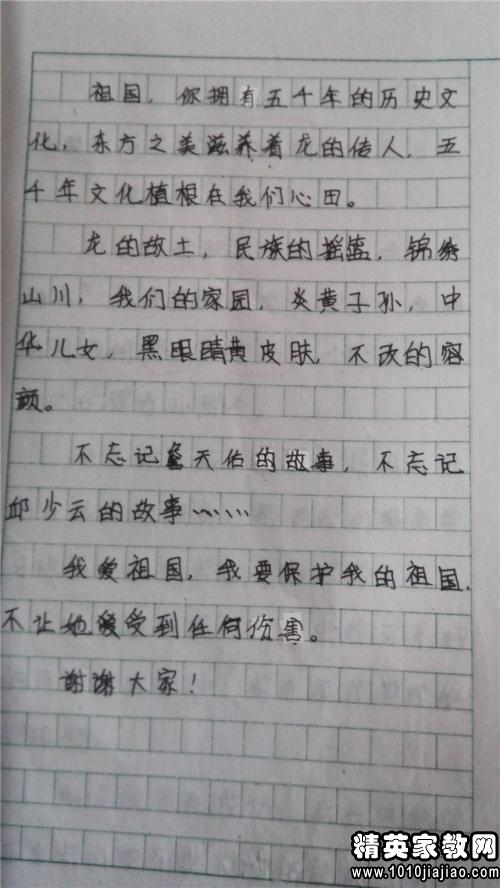 祖国，你拥有五千年的历史文
化，东方之美滋养着龙的传人，五
千年文化植根在我们心田。
龙的故土，民族的摇篮，锦绣
山川，我们的家园，炎黄子孙，中
华儿女，黑眼睛黄皮肤，不改的容
颜。
不忘记詹天佑的故事，不忘记
邱少云的故事……
我爱祖国，我要保护我的祖国，
不让她受到任何伤害。
谢谢大家！
精英家教网
www.1010jiajiao.com